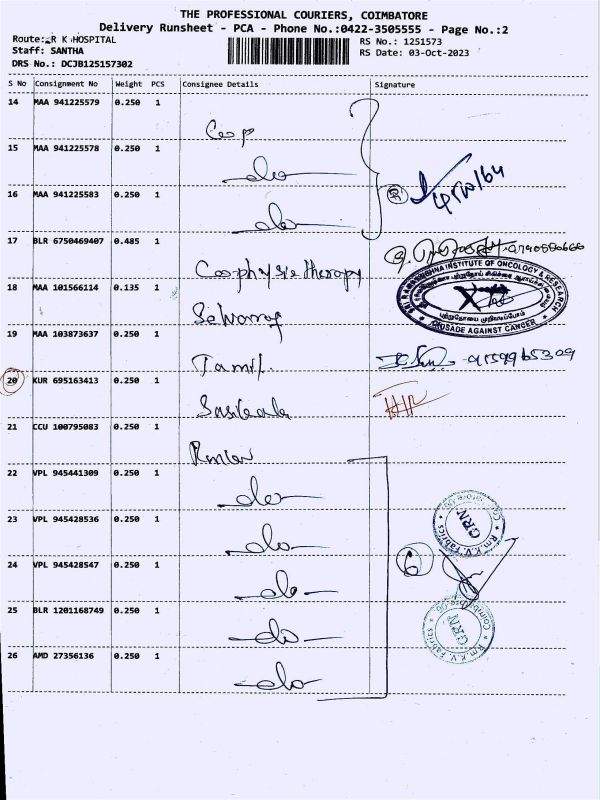 THE PROFESSIONAL COURIERS, COIMBATORE
Delivery Runsheet - PCA - Phone No.:0422-3505555 - Page No.:2
Route: R K HOSPITAL
RS No.: 1251573
Staff: SANTHA
RS Date: 03-Oct-2023
DRS No.: DCJB125157302
S No Consignment No Weight PCS Consignee Details Signature
14 MAA 941225579 0.250 1
15 MAA 941225578 0.250 1
do
16 MAA 941225583 0.250 1
do
17 BLR 6750469407 0.485 1
18 MAA 101566114 0.135 1
Selvaraj
SRI RAMAKRISHNA INSTITUTE OF ONCOLOGY & RESEARCH
CRUSADE AGAINST CANCER
19 MAA 103873637 0.250 1
Tamil
20 KUR 695163413 0.250 1
Sasikala
21 CCU 100795083 0.250 1
22 VPL 945441309 0.250 1
do
23 VPL 945428536 0.250 1
do
Rm.K.V. Fabrics
GRN
24 VPL 945428547 0.250 1
do
6
25 BLR 1201168749 0.250 1
do
Rm.K.V. Fabrics
GRN
26 AMD 27356136 0.250 1
do